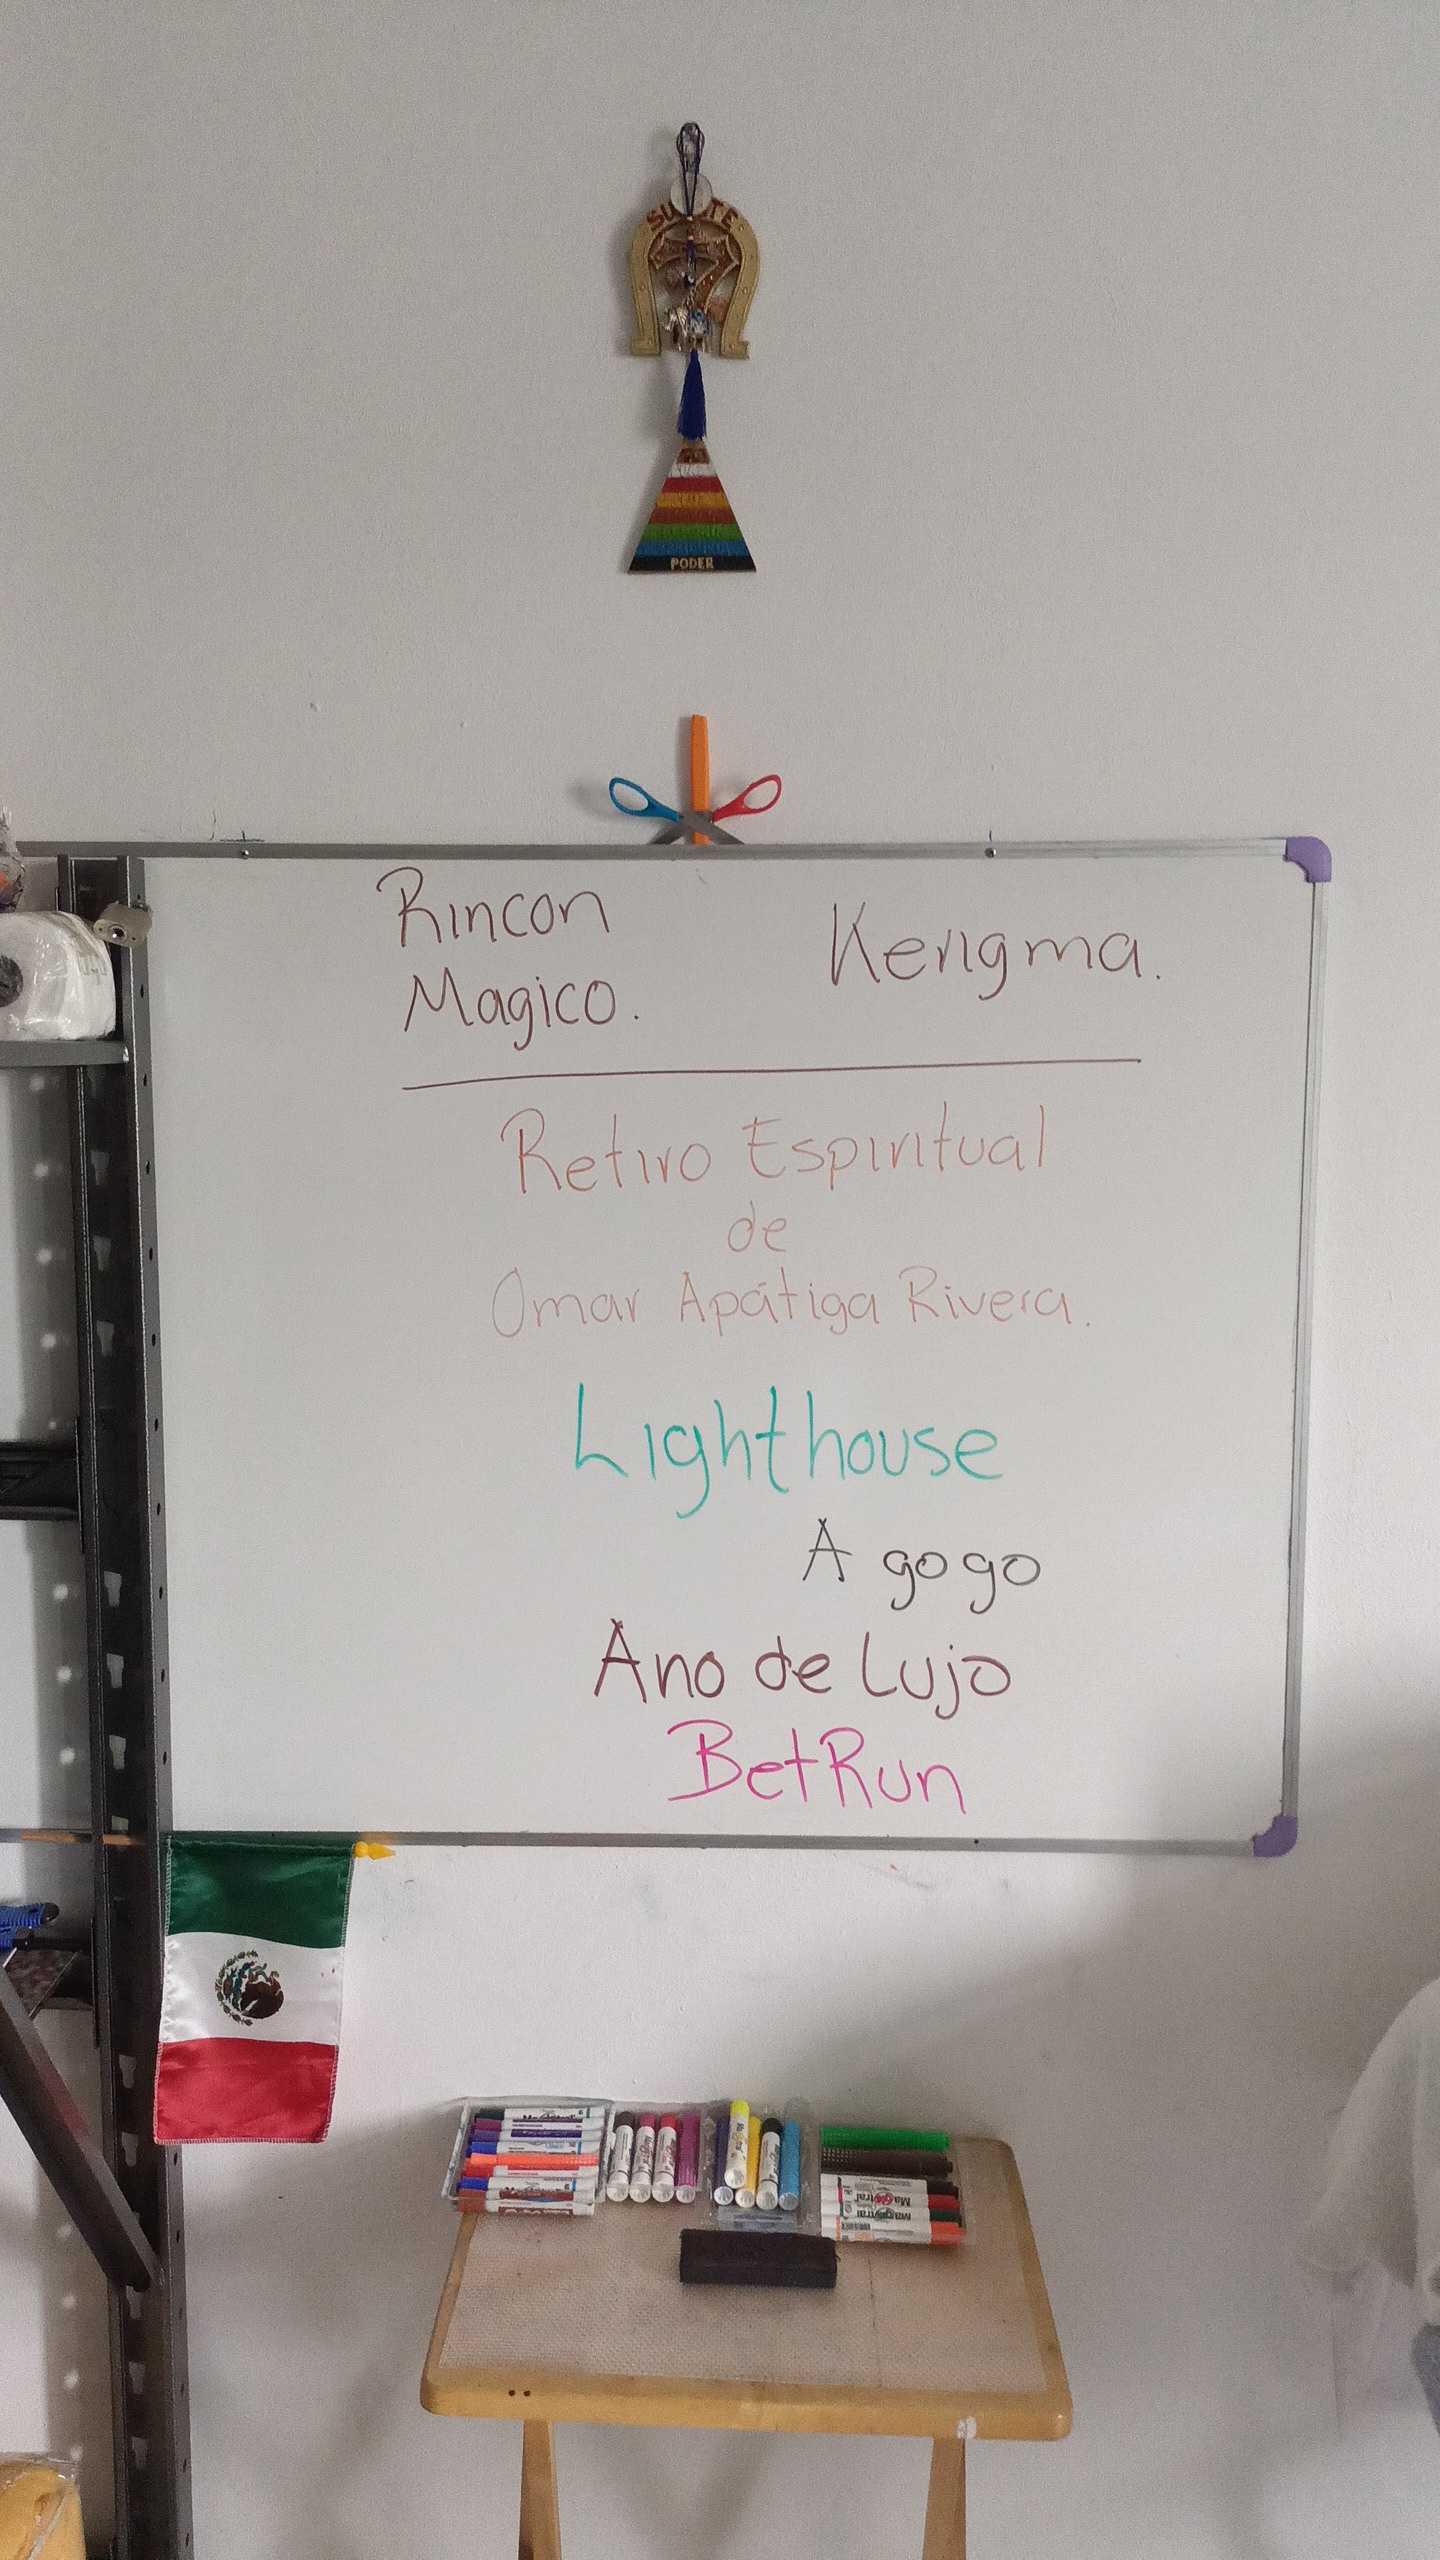 SUERTE
7
PODER
Rincon
Magico.
Kerigma.
Retiro Espiritual
de
Omar Apátiga Rivera.
Lighthouse
A gogo
Ano de Lujo
BetRun
Magistral
Magistral